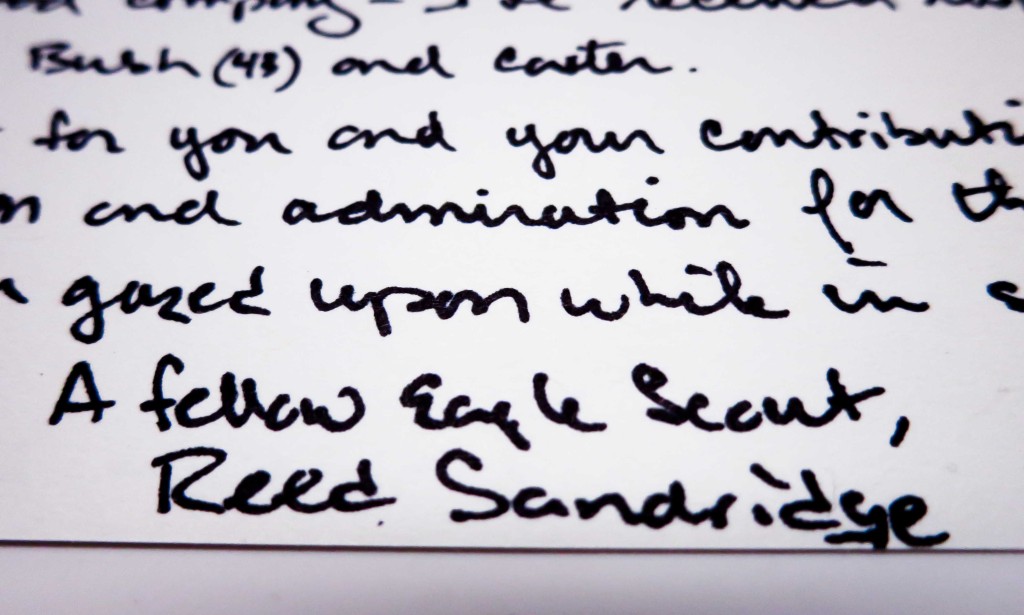 company - I've received
Bush (43) and Carter.
for you and your contributi
and admiration for th
gazed upon while in s
A fellow Eagle Scout,
Reed Sandridge